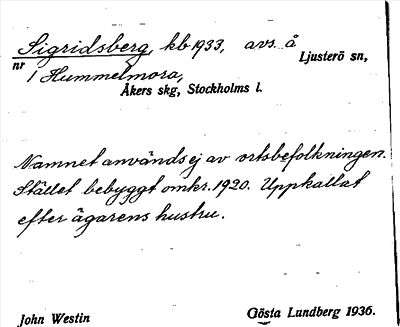 Sigridsberg, kb 1933, avs. å Ljusterö sn,
nr 1 Hummelmora,
Åkers skg, Stockholms l.
Namnet används ej av ortsbefolkningen.
Stället bebyggt omkr. 1920. Uppkallat
efter ägarens hustru.
John Westin Gösta Lundberg 1936.